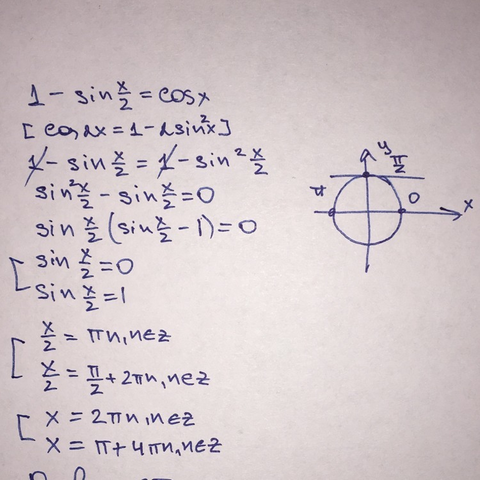 1 - sin x/2 = cosx
[cos 2x = 1 - 2sin²x]
1 - sin x/2 = 1 - sin² x/2
sin² x/2 - sin x/2 = 0
sin x/2 (sin x/2 - 1) = 0
[ sin x/2 = 0
sin x/2 = 1
[ x/2 = πn, n∈z
x/2 = π/2 + 2πn, n∈z
[ x = 2πn, n∈z
x = π + 4πn, n∈z
y
π/2
π
0
x